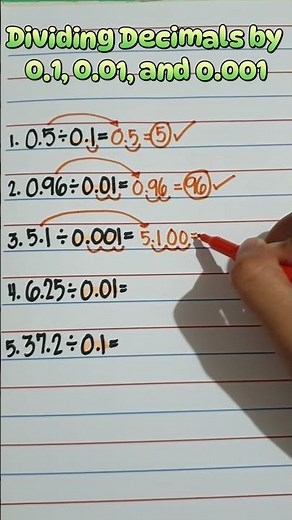 Dividing Decimals by
0.1, 0.01, and 0.001
1. 0.5÷0.1=0.5=5✓
2. 0.96÷0.01=0.96=96✓
3. 5.1÷0.001=5.100=
4. 6.25÷0.01=
5. 37.2÷0.1=